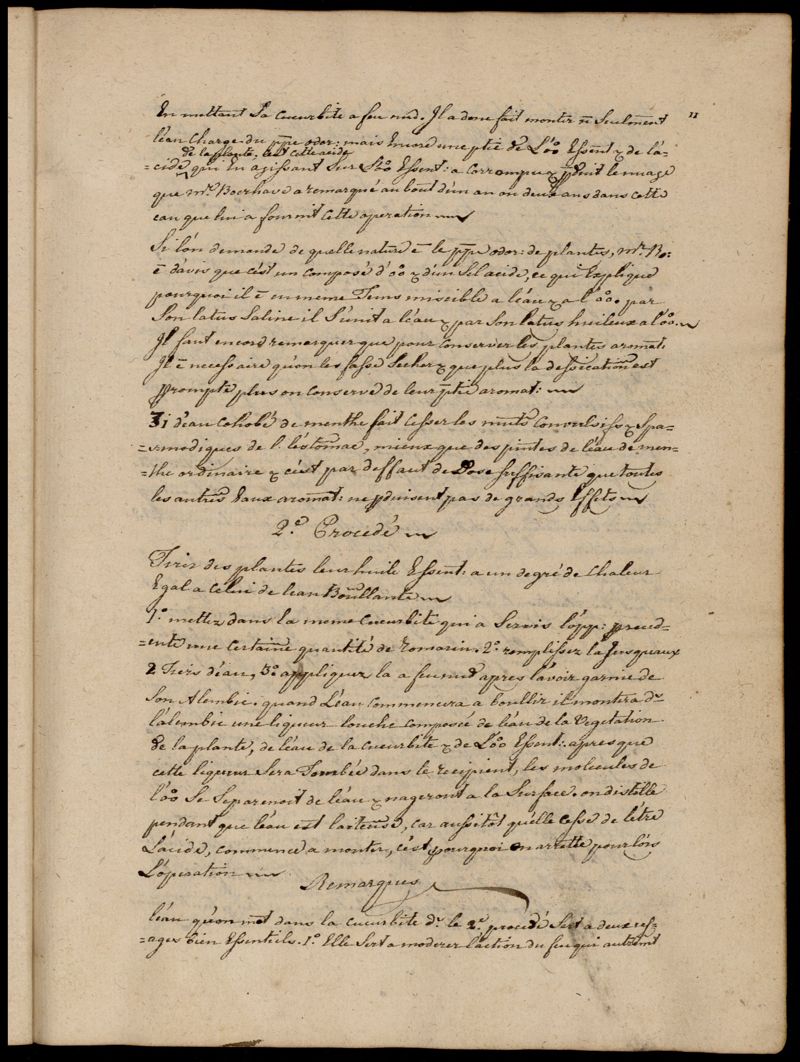 11
En mettant La cucurbite a feu nud. Il a donc fait montir ñ Seulment
léau Chargé du ppe odor: mais Encore une ptie de L'oo Essent & de l'a-
de la plante, c'est cette acide
=cide qui En agissant Sur L'oo Essent: a Corrompu & pduit le nuage
que mr. Boerhave a remarqué au bout d'un an ou deux ans dans cette
eau que lui a fournit cette operation
Si l'ón demande de quelle nature ē le ppe odor: de plantes, mr. Bo:
ē davis que cést un composé d'oo & d'un Sel acide, ce qui Explique
pourquoi il ē en meme Tems miscible a léau & a l'oo. par
Son latus Saline il S'unit a léau & par Son latus huileux a l'oo.
Il faut encor remarquer que pour conserver les plantes aromat:
Il ē necessaire qu'on les fasse Secher & que plus la dessication est
prompte plus on conserve de leur ptie aromat:
℥i d'éau cohobé de menthe fait cesser les mvts Convulsifs & Spa-
=smodiques de l'éstomac, mieux que des pintes de l'éau de men-
=the ordinaire & cést par deffaut de Dose Suffisante que toutes
les autres Eaux aromat: ne pduisent pas de grands Effets
2.e Procedé
Tirer des plantes leur huile Essent: a un degré de Chaleur
Egal a Celui de leau Bouillante
1.o mettez dans la meme Cucurbite qui a Servis l'opp: preced-
=ente une certaine quantité de Romarin. 2.o remplissez la Jusquaux
2 Tiers d'éau, 3.o appliquez la a feu nud apres l'avoir garnie de
Son Alembic. quand Léau commencera a boullir il montera dr
lálembic une liqueur louche composée de léau de la Vegetation
de la plante, de léau de la cucurbite & de L'oo Essent: apres que
cette liqueur Sera Tombée dans le recipient, les molecules de
l'oo Se Separenoit de léau & nageront a la Surface. on distille
pendant que léau est laiteuse, car aussitôt qu'elle cesse de létre
Lácide, commence a monter, cést pourquoi on arrette pour lórs
L'operation
Remarques
léau qu'on met dans la cucurbite dr le 2.e procédé Sert a deux us-
=ages bien Essentiels. 1.o Elle Sert a moderer láction du feu qui autremt